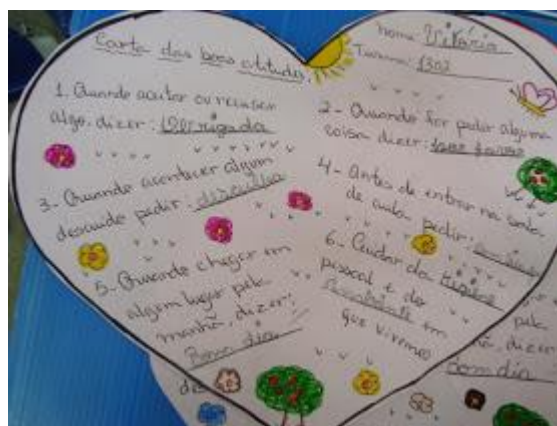 Carta das boas atitudes.
Nome: Vitória
Turma: 1302
1. Quando aceitar ou recusar
algo, dizer: Obrigada
2- Quando for pedir alguma
coisa dizer: por favor
3- Quando acontecer algum
descuido pedir: desculpa
4- Antes de entrar na sala
de aula, pedir:
5- Quando chegar em
algum lugar pela
manhã, dizer:
Bom dia
6- Cuidar da higiene
pessoal e do
ambiente em
que vivemos
pela
dizer
bom dia